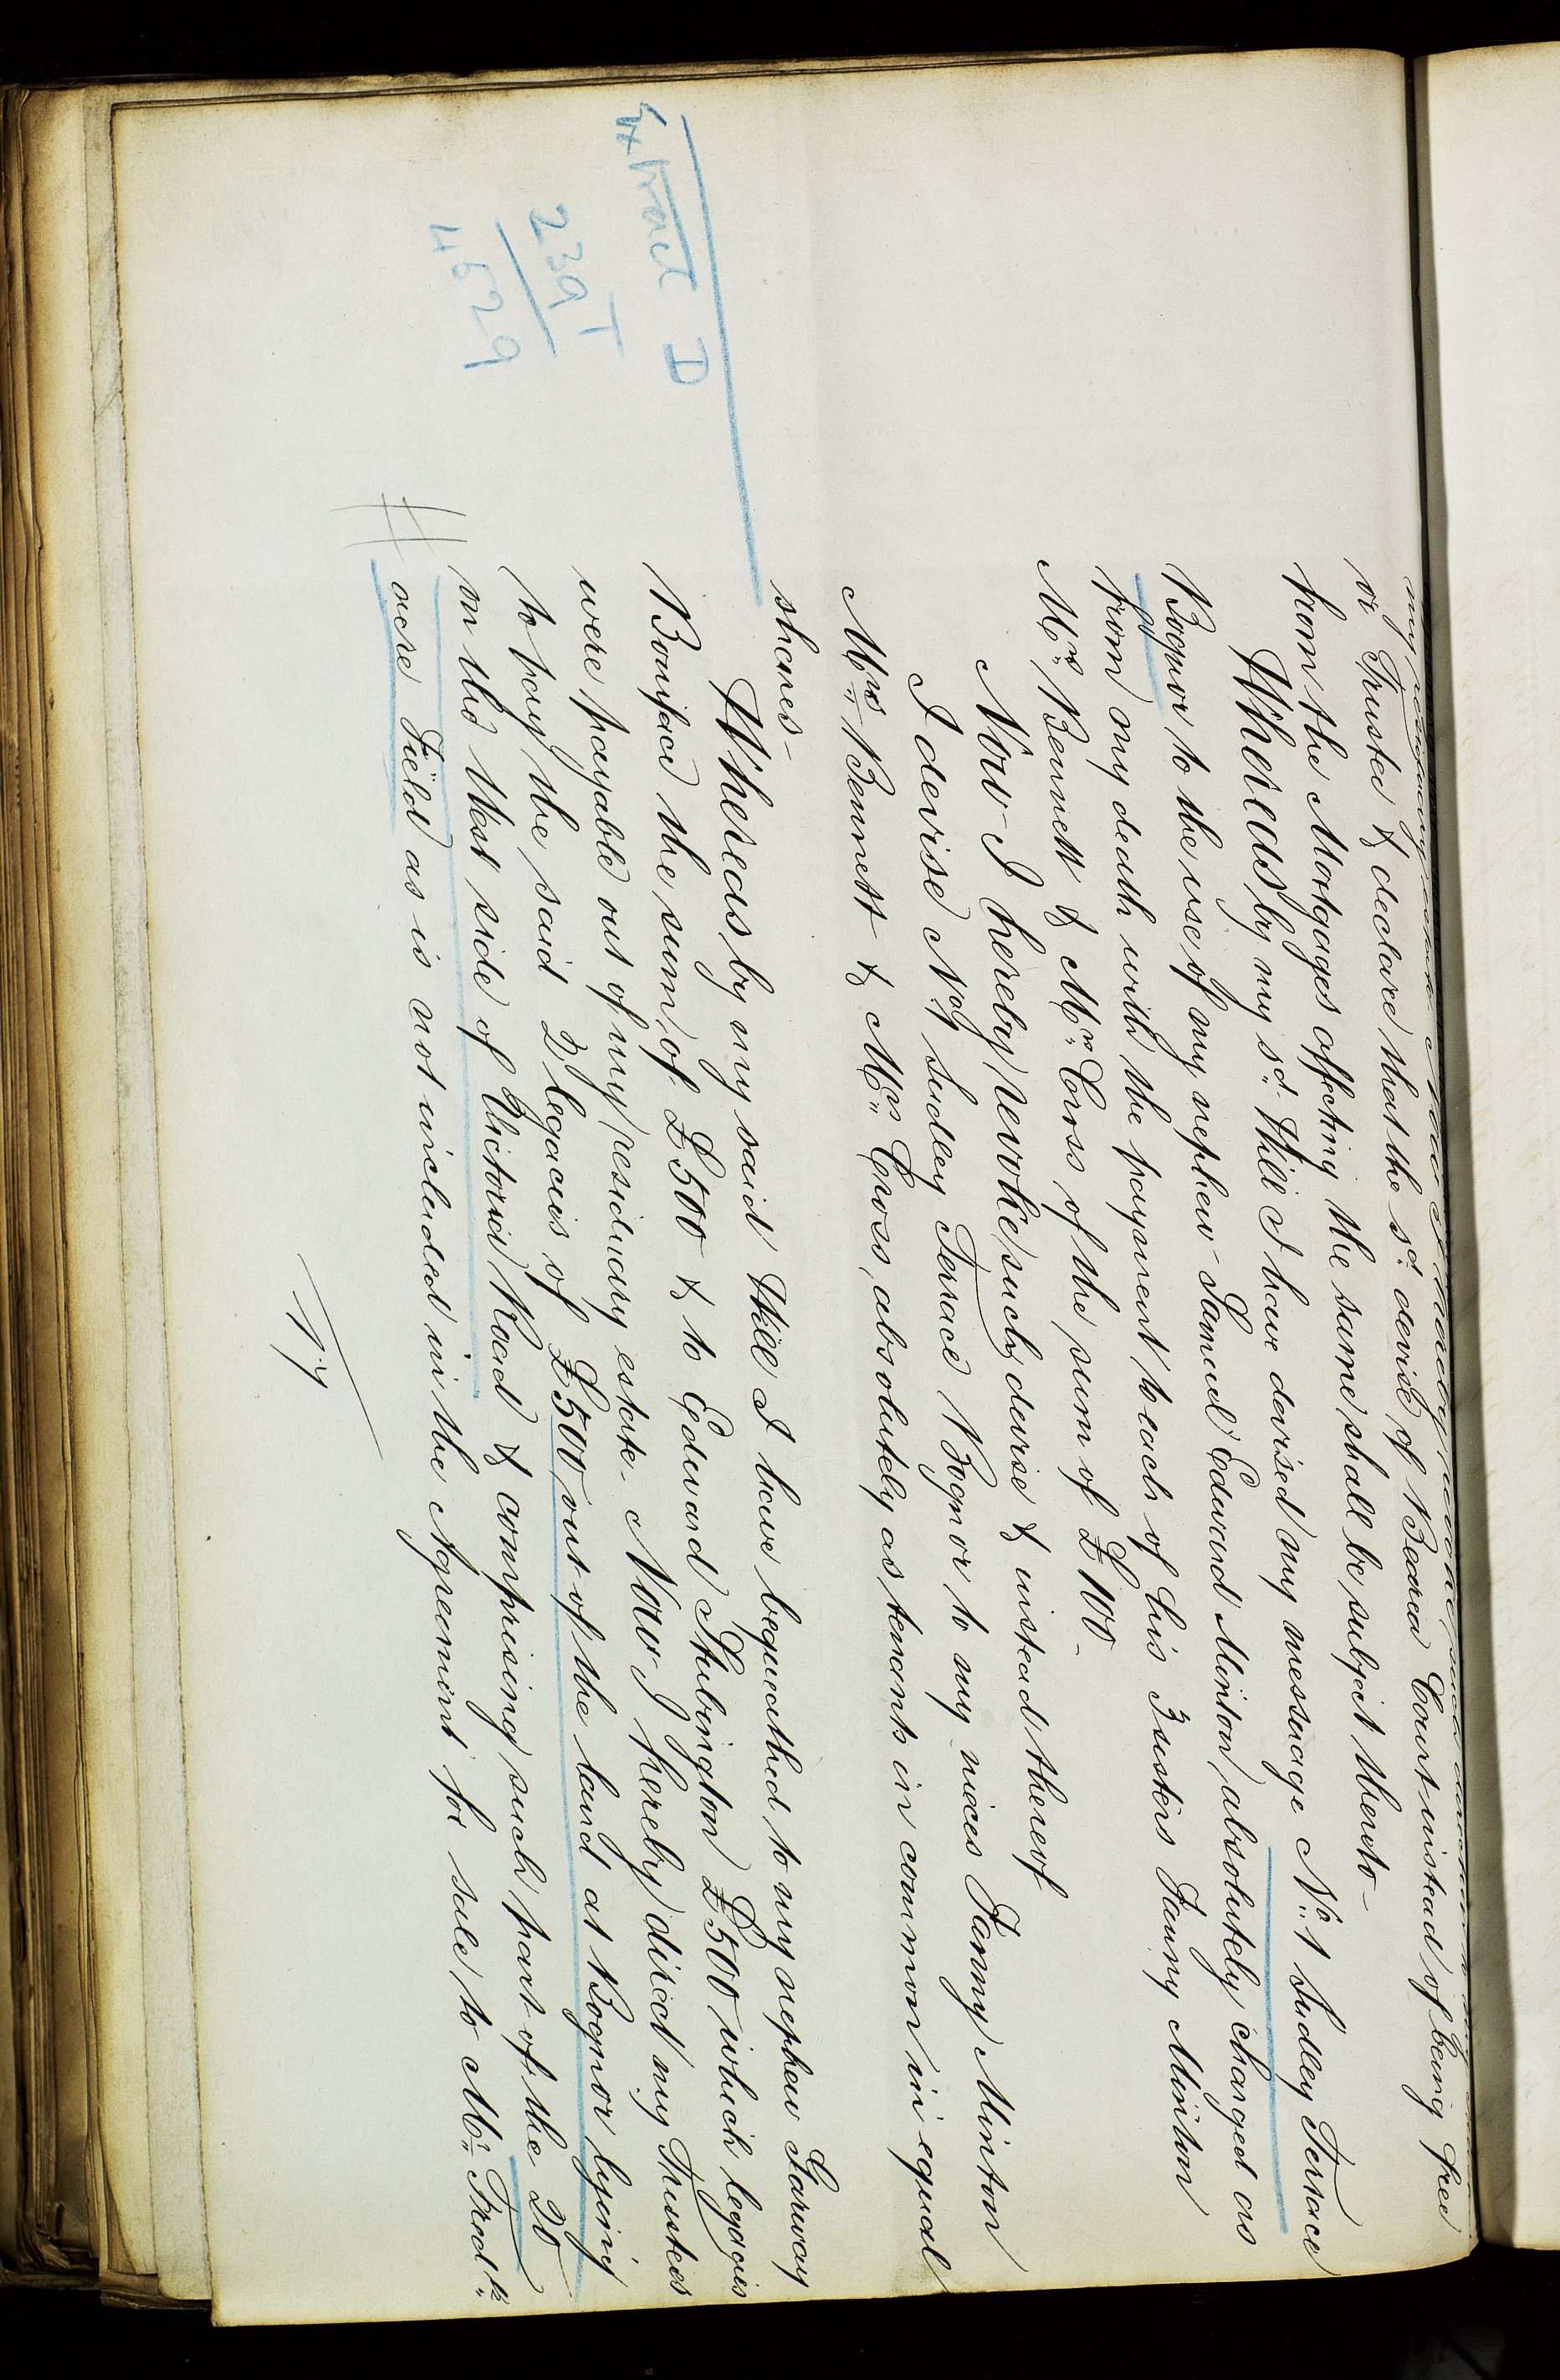 or Trustee & declare that the sd. devise of Beara Court instead of being free
from the Mortgages affecting the same shall be subject thereto -
Whereas by my sd. Will I have devised my messuage No. 1 Sudley Terrace
Bognor to the use of my nephew Samuel Edward Minton absolutely charged as
from my death with the payment to each of his 3 sisters Fanny Minton
Mrs. Bennett & Mrs. Cross of the sum of £100 -
Now I hereby revoke such devise & instead thereof
I devise No. 1 Sudley Terrace Bognor to my nieces Fanny Minton
Mrs. Bennett & Mrs. Cross, absolutely as tenants in common in equal
shares -
Whereas by my said Will I have bequeathed to my nephew Garway
Bouifacd the sum of £500 & to Edward Stubington £500 which legacies
were payable out of my residuary estate. Now I hereby direct my Trustees
to pay the said 2 legacies of £500 out of the land at Bognor lying
on the West side of Victoria Road & comprising such part of the 20
acre Field as is not included in the Agreement for sale to Mr. Fredk.
Extract D
239T
4529